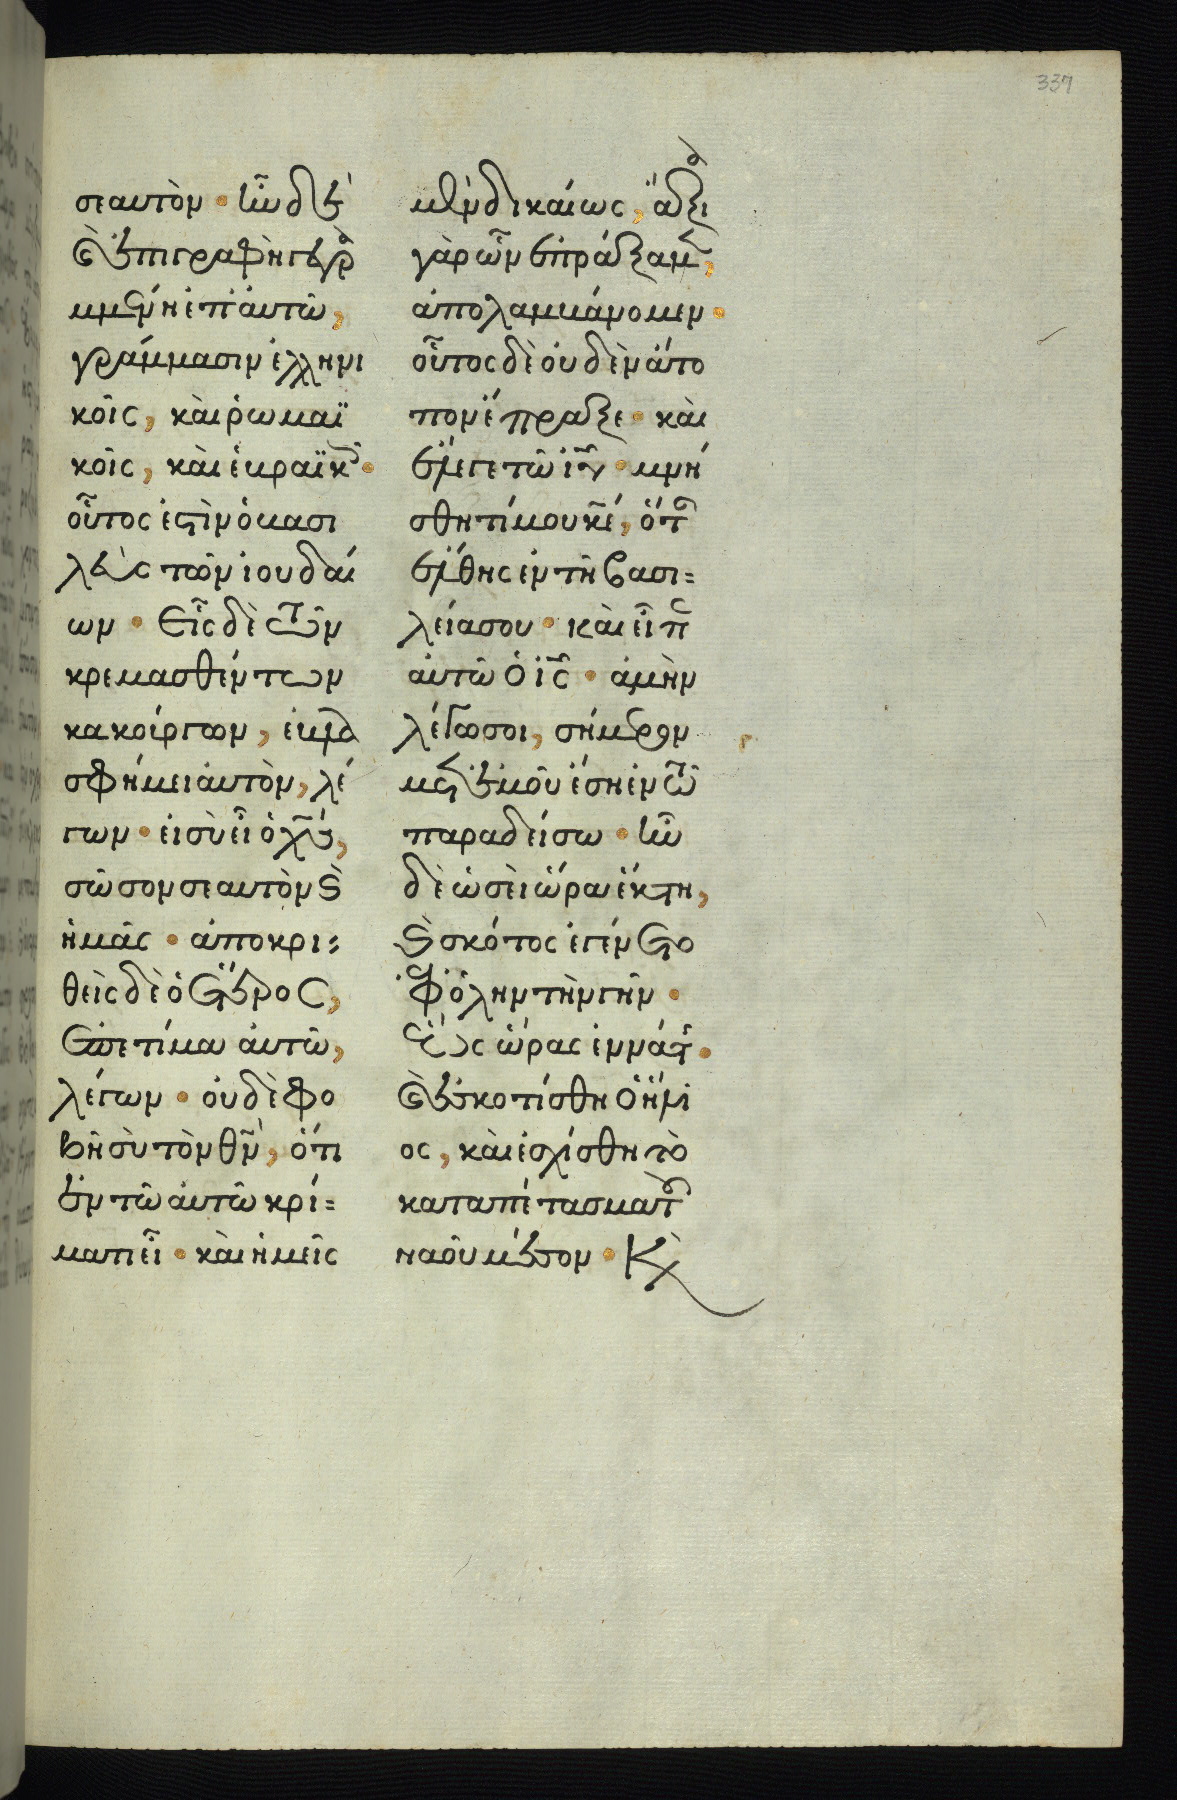 337
σεαυτὸν · ἦν δὲ
καὶ ἐπιγραφὴ γεγρα
μμένη ἐπ' αὐτῶ,
γράμμασιν ἑλληνι
κοῖς, καὶ ῥωμαϊ
κοῖς, καὶ ἑβραϊκοῖς ·
οὗτος ἐστὶν ὁ βασι
λεὺς τῶν ἰουδαί
ων · Εἷς δὲ τῶν
κρεμασθέντων
κακούργων, ἐβλα
σφήμει αὐτὸν, λέ
γων · εἰ σὺ εἶ ὁ χς,
σῶσον σεαυτὸν καὶ
ἡμᾶς · ἀποκρι=
θεὶς δὲ ὁ ἕτερος,
ἐπετίμα αὐτῶ,
λέγων · οὐδὲ φο
βῆ σὺ τὸν θν, ὅτι
ἐν τῶ αὐτῶ κρί=
ματι εἶ · καὶ ἡμεῖς
μὲν δικαίως, ἄξι
γὰρ ὧν ἐπράξαμεν,
ἀπολαμβάνομεν ·
οὗτος δὲ οὐδὲν ἄτο
πον ἔπραξε · καὶ
ἔλεγε τῶ ιυ · μνή
σθητί μου κε, ὅταν
ἔλθης ἐν τῆ βασι=
λεία σου · καὶ εἶπεν
αὐτῶ ὁ ις · ἀμὴν
λέγω σοι, σήμερον
μετ' ἐμοῦ ἔση ἐν τῶ
παραδείσω · ἦν
δὲ ὡσεὶ ὥρα ἕκτη,
καὶ σκότος ἐγένετο
ἐφ' ὅλην τὴν γῆν ·
ἕως ὥρας ἐννάτης ·
καὶ ἐσκοτίσθη ὁ ἥλι
ος, καὶ ἐσχίσθη τὸ
καταπέτασμα τοῦ
ναοῦ μέσον · Καὶ